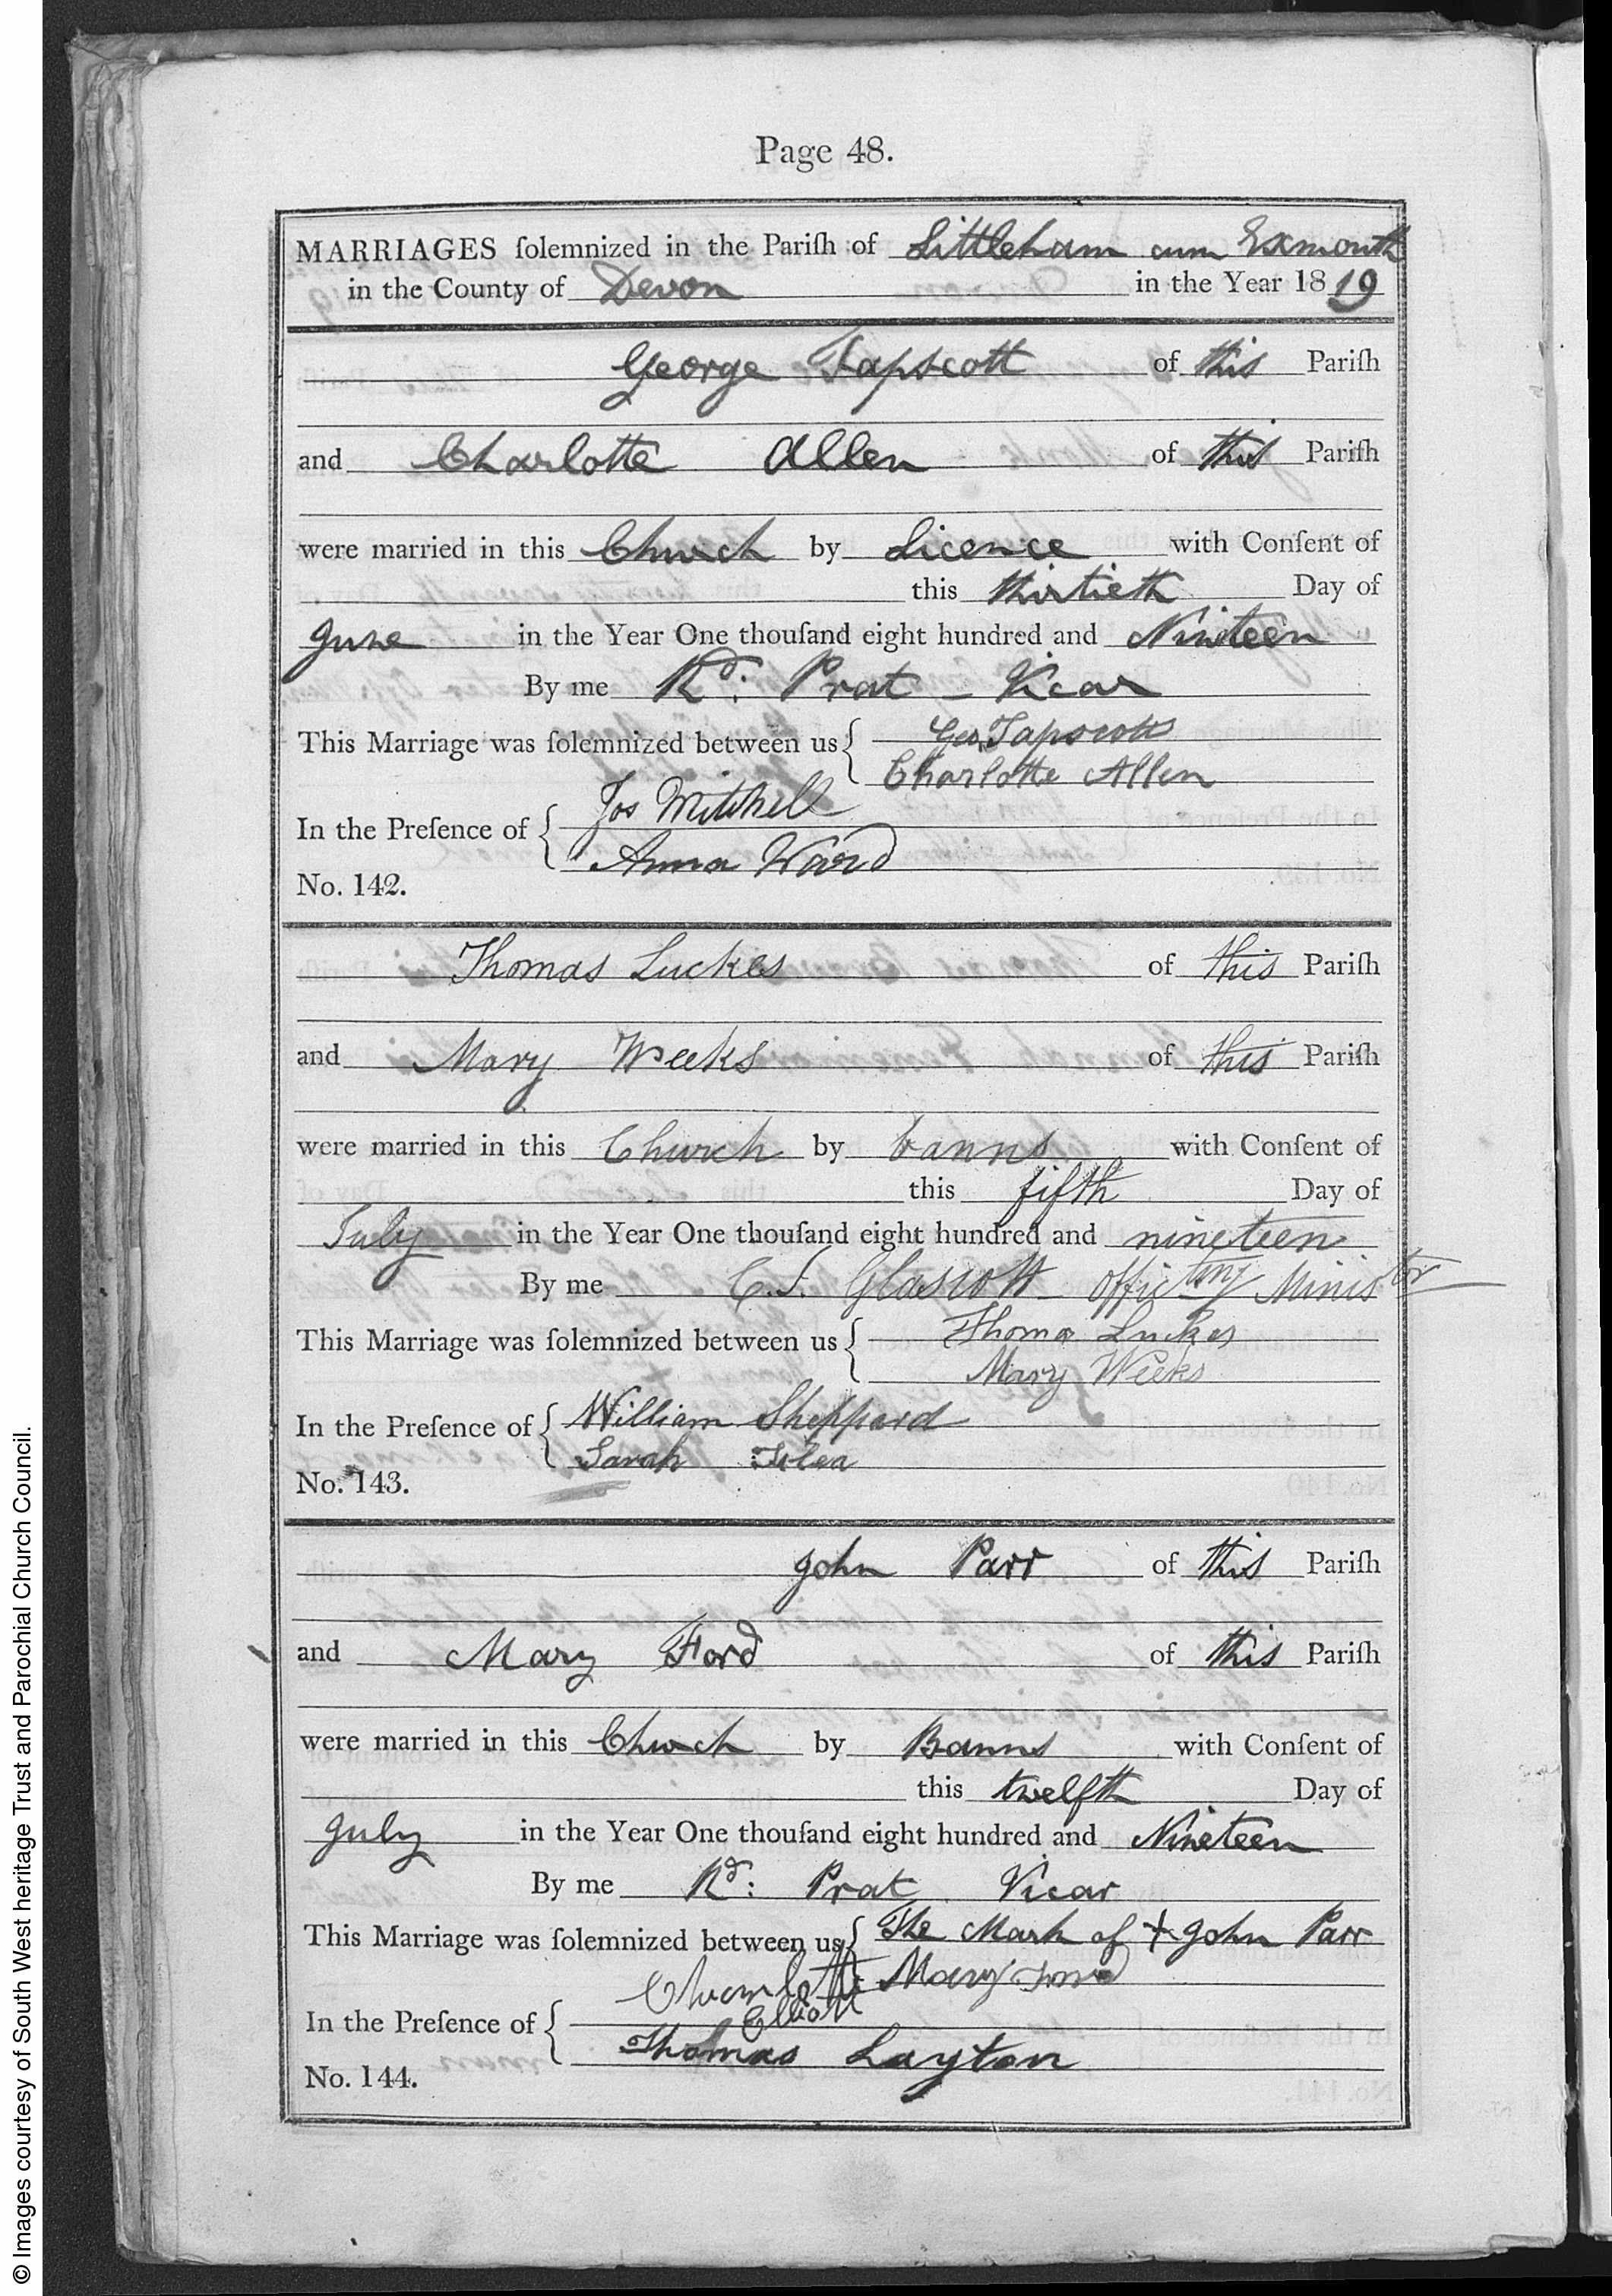 Page 48.
MARRIAGES ſolemnized in the Pariſh of Littleham cum Exmouth
in the County of Devon in the Year 1819
George Tapscott of this Pariſh
and Charlotte Allen of this Pariſh
were married in this Church by Licence with Conſent of
this thirtieth Day of
June in the Year One thouſand eight hundred and Nineteen
By me Rd: Prat - Vicar
This Marriage was ſolemnized between us { Geo Tapscott
Charlotte Allen
In the Preſence of { Jos Mitchell
Anna Ward
No. 142.
Thomas Luckes of this Pariſh
and Mary Weeks of this Pariſh
were married in this Church by banns with Conſent of
this fifth Day of
July in the Year One thouſand eight hundred and nineteen
By me C. J. Glascott Officitng Minister
This Marriage was ſolemnized between us { Thoma Luckes
Mary Weeks
In the Preſence of { William Sheppard
Sarah
No. 143.
John Parr of this Pariſh
and Mary Ford of this Pariſh
were married in this Church by Banns with Conſent of
this twelfth Day of
July in the Year One thouſand eight hundred and Nineteen
By me Rd: Prat Vicar
This Marriage was ſolemnized between us { The Mark of + John Parr
Mary Ford
In the Preſence of { Charlotte Elliott
Thomas Layton
No. 144.
© Images courtesy of South West heritage Trust and Parochial Church Council.